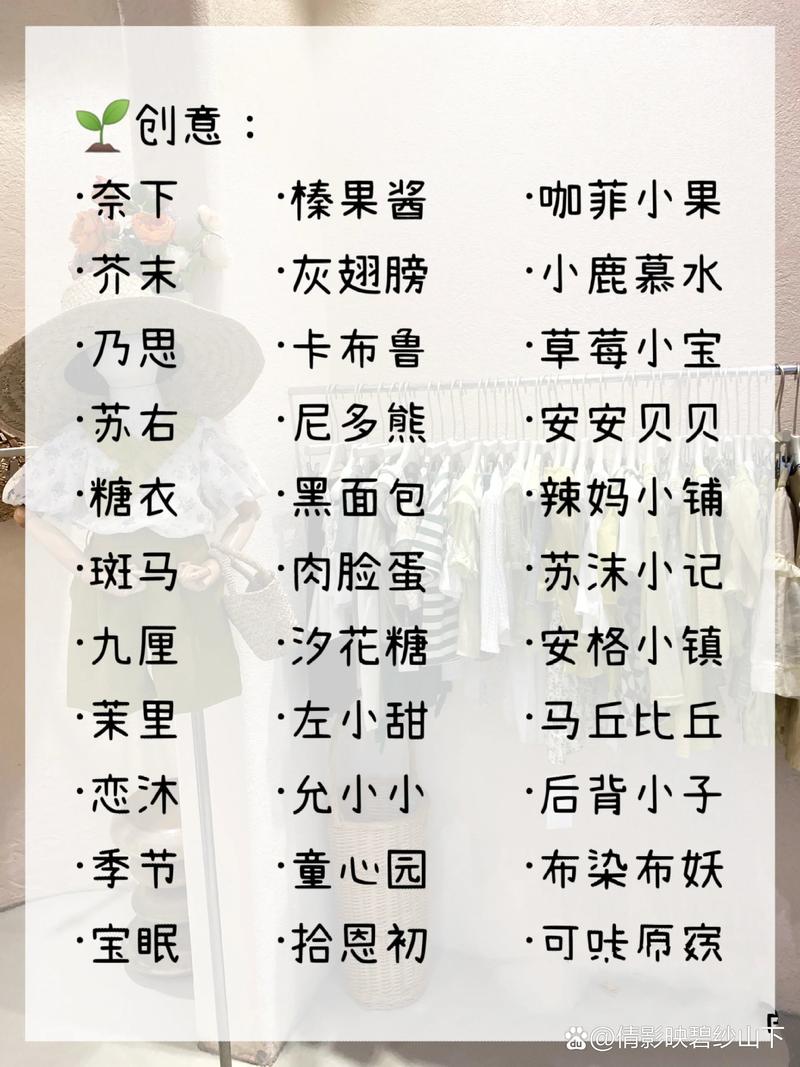 🌱创意：
·奈下 ·榛果酱 ·咖菲小果
·芥末 ·灰翅膀 ·小鹿慕水
·乃思 ·卡布鲁 ·草莓小宝
·苏右 ·尼多熊 ·安安贝贝
·糖衣 ·黑面包 ·辣妈小铺
·斑马 ·肉脸蛋 ·苏沫小记
·九厘 ·汐花糖 ·安格小镇
·茉里 ·左小甜 ·马丘比丘
·恋沐 ·允小小 ·后背小子
·季节 ·童心园 ·布染布妖
·宝眠 ·拾恩初 ·可咔原
du @倩影映碧纱山下